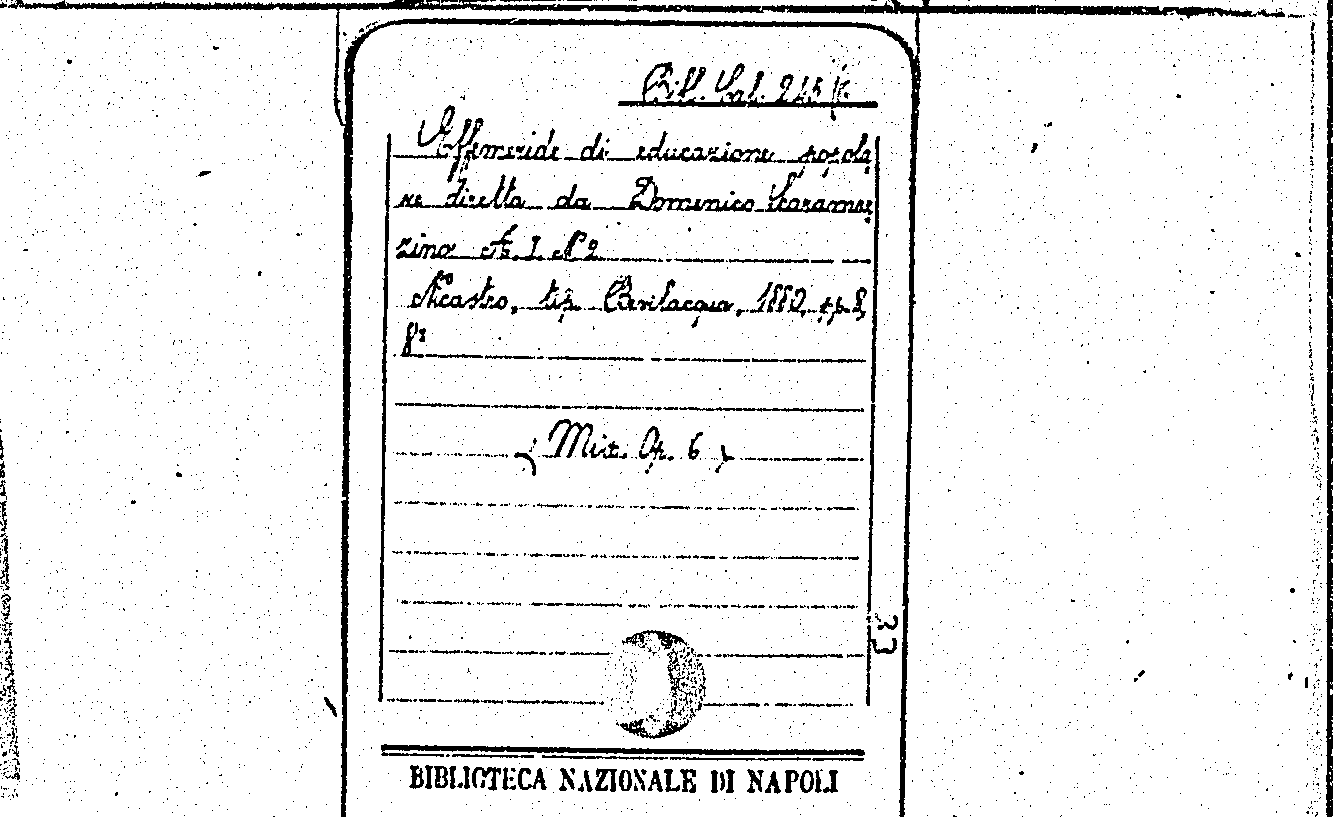 Bibl. Cal. 245
Effemeride di educazione popola
re diretta da Domenico Scaramuz
zino A. I. N 2
Nicastro, tip. Bevilacqua, 1880, pp. 8,
8º
( Misc. Op. 6 )
33
BIBLIOTECA NAZIONALE DI NAPOLI